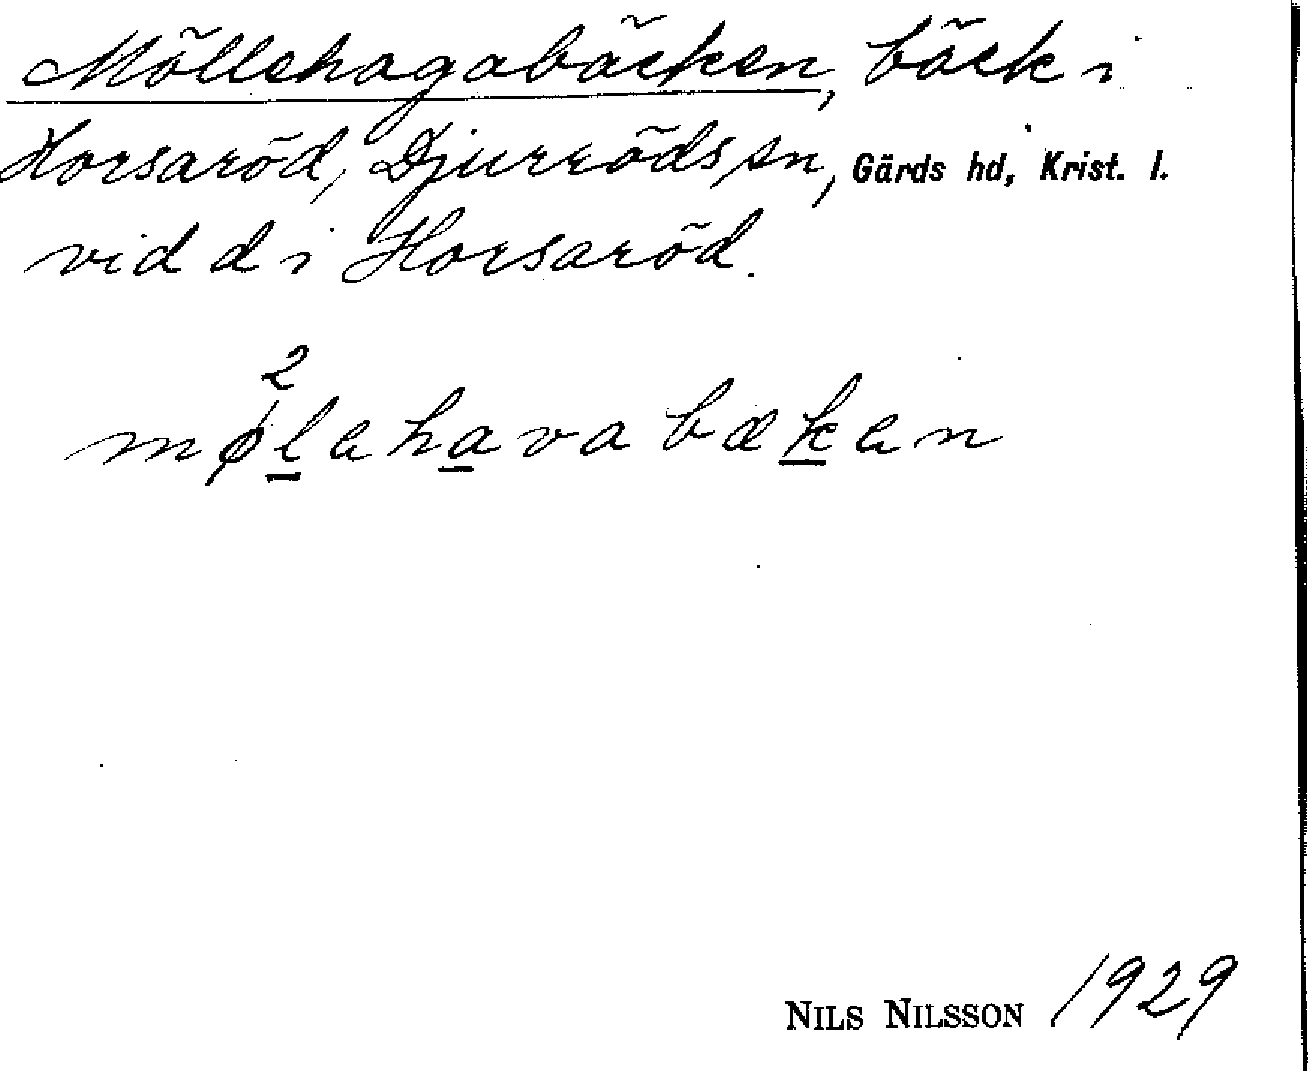 Möllehagabäcken, bäck i
Horsaröd, Djurröds sn, Gärds hd, Krist. l.
vid d i Horsaröd.
2
møl̲aha̲vabæk̲an
NILS NILSSON 1929